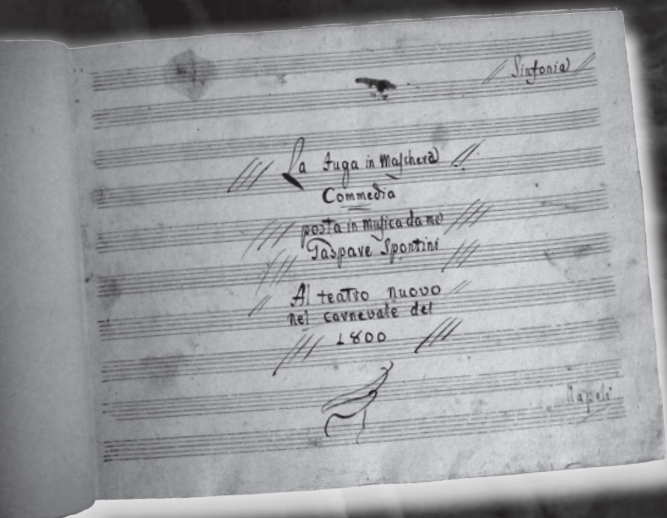 Sinfonia
La fuga in Maschera
Commedia
posta in musica da me
Gaspare Spontini
Al teatro nuovo
nel carnevale del
1800
Napoli